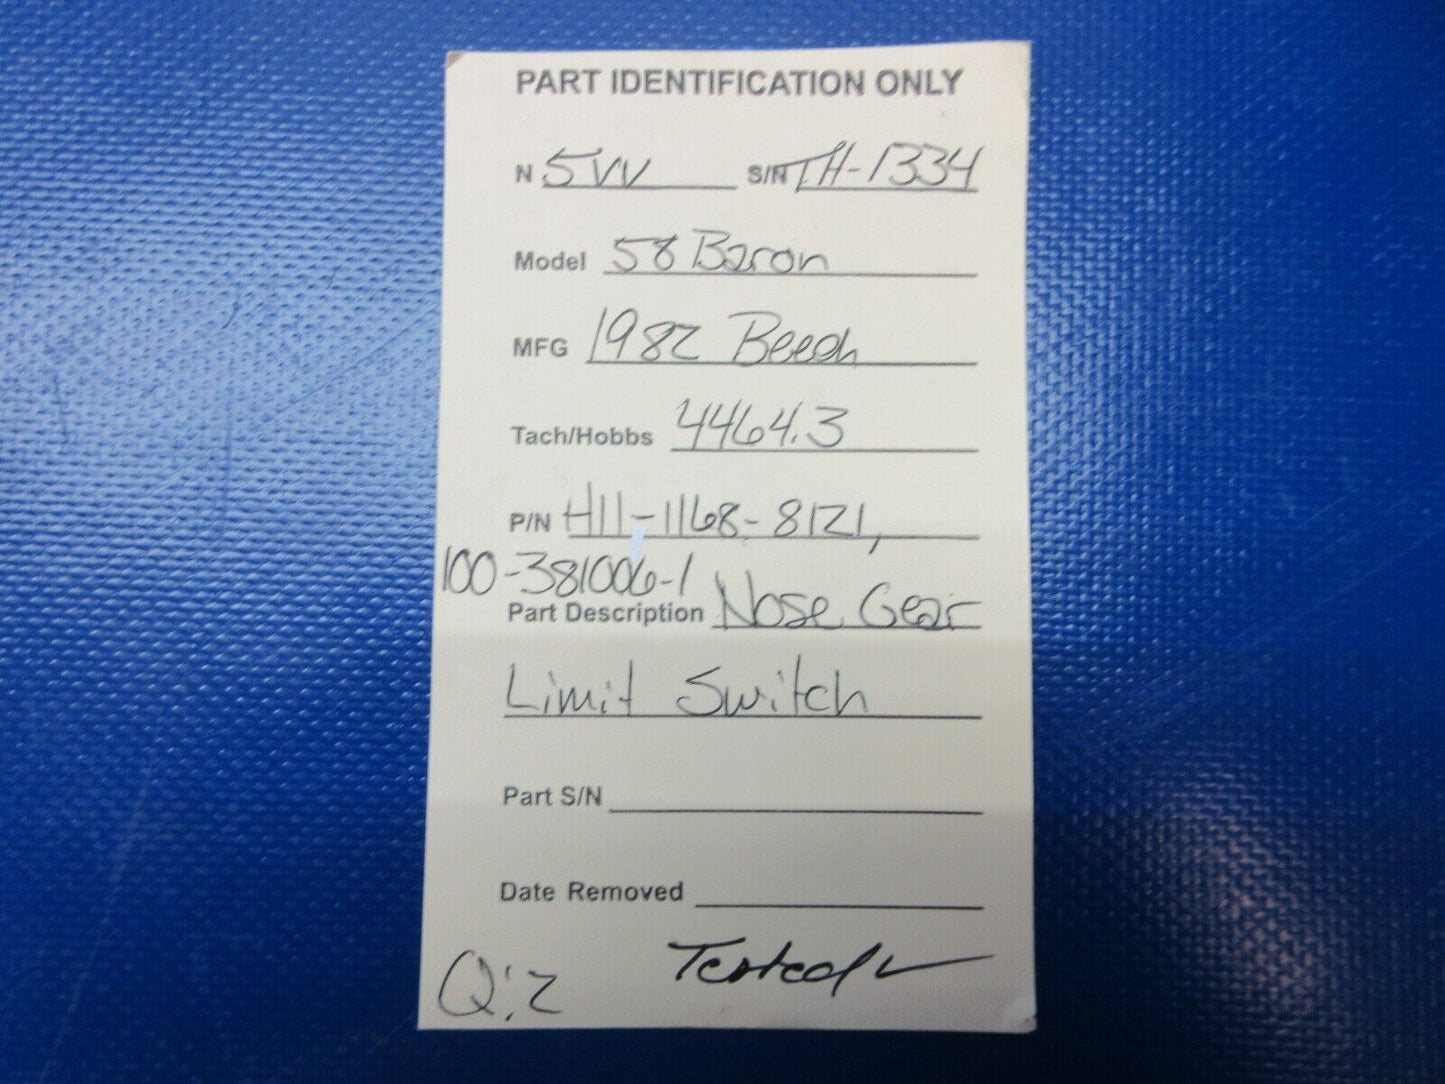 PART IDENTIFICATION ONLY
N 5VV S/N TH-1334
Model 58 Baron
MFG 1982 Beech
Tach/Hobbs 4464.3
P/N H11-1168-8121,
100-381006-1
Part Description Nose Gear
Limit Switch
Part S/N
Date Removed
Q:2 Tested ✓